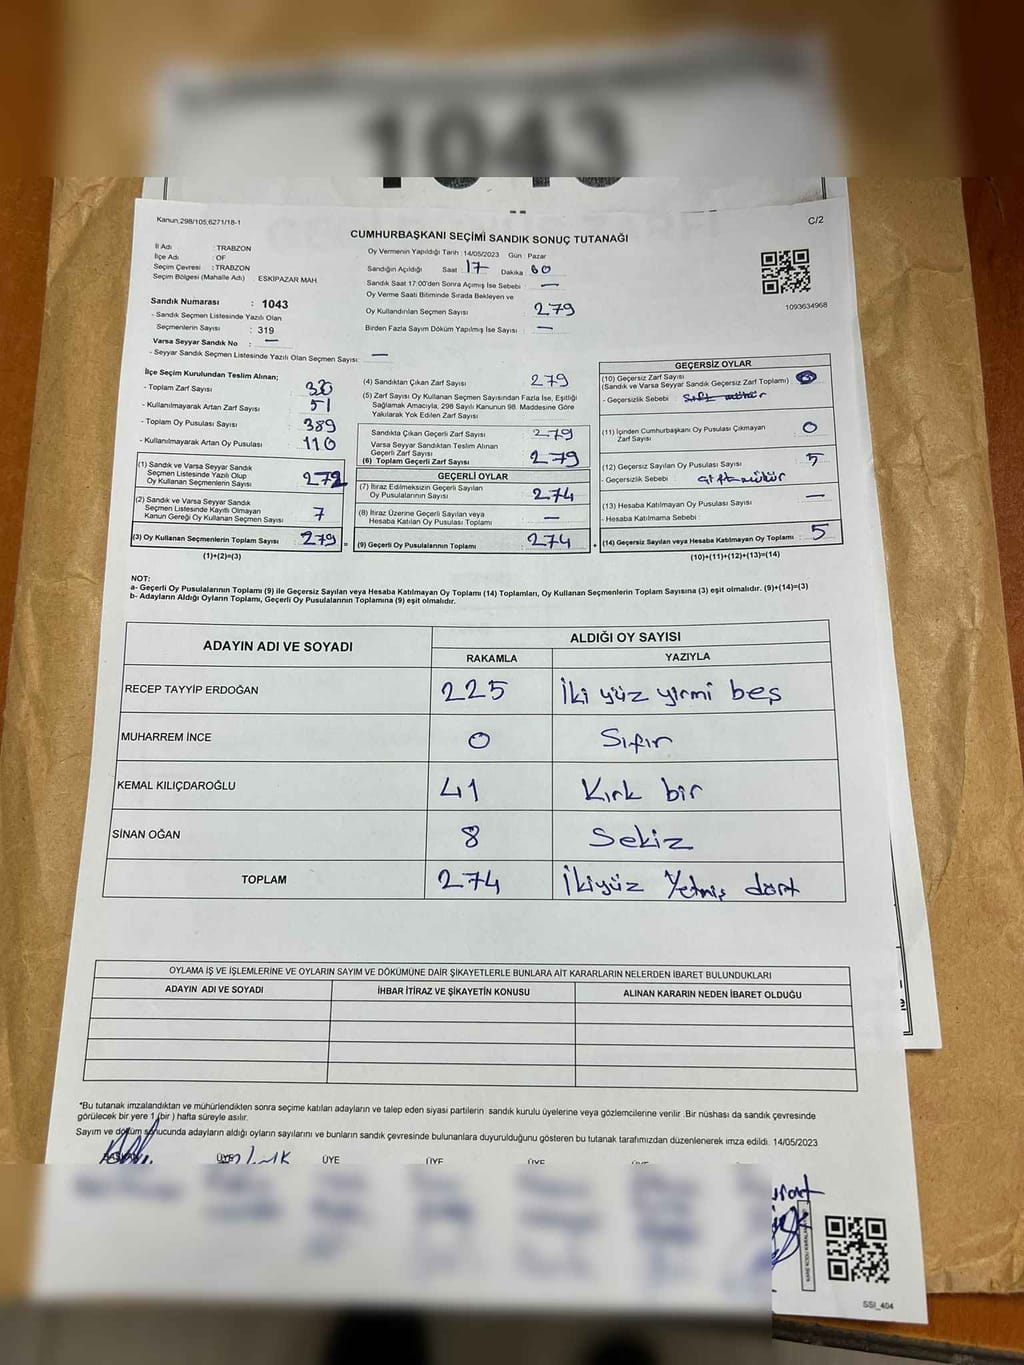 1043
Kanun,298/105;6271/18-1
C/2
CUMHURBAŞKANI SEÇİMİ SANDIK SONUÇ TUTANAĞI
İl Adı : TRABZON
İlçe Adı : OF
Seçim Çevresi : TRABZON
Seçim Bölgesi (Mahalle Adı) : ESKİPAZAR MAH.
Oy Vermenin Yapıldığı Tarih :14/05/2023 Gün : Pazar
Sandığın Açıldığı Saat 17 Dakika
Sandık Saat 17:00'den Sonra Açımış İse Sebebi : —
Oy Verme Saati Bitiminde Sırada Bekleyen ve
Oy Kullandırılan Seçmen Sayısı : 279
Birden Fazla Sayım Döküm Yapılmış İse Sayısı : —
1093634968
Sandık Numarası : 1043
- Sandık Seçmen Listesinde Yazılı Olan
Seçmenlerin Sayısı : 319
Varsa Seyyar Sandık No : —
- Seyyar Sandık Seçmen Listesinde Yazılı Olan Seçmen Sayısı: —
İlçe Seçim Kurulundan Teslim Alınan;
- Toplam Zarf Sayısı :
- Kullanılmayarak Artan Zarf Sayısı : 51
- Toplam Oy Pusulası Sayısı : 389
- Kullanılmayarak Artan Oy Pusulası : 110
(1) Sandık ve Varsa Seyyar Sandık
Seçmen Listesinde Yazılı Olup
Oy Kullanan Seçmenlerin Sayısı : 272
(2) Sandık ve Varsa Seyyar Sandık
Seçmen Listesinde Kayıtlı Olmayan
Kanun Gereği Oy Kullanan Seçmen Sayısı : 7
(3) Oy Kullanan Seçmenlerin Toplam Sayısı : 279
(1)+(2)=(3)
(4) Sandıktan Çıkan Zarf Sayısı : 279
(5) Zarf Sayısı Oy Kullanan Seçmen Sayısından Fazla İse, Eşitliği
Sağlamak Amacıyla, 298 Sayılı Kanunun 98. Maddesine Göre
Yakılarak Yok Edilen Zarf Sayısı
Sandıkta Çıkan Geçerli Zarf Sayısı : 279
Varsa Seyyar Sandıktan Teslim Alınan
Geçerli Zarf Sayısı
(6) Toplam Geçerli Zarf Sayısı : 279
GEÇERLİ OYLAR
(7) İtiraz Edilmeksizin Geçerli Sayılan
Oy Pusulalarının Sayısı : 274
(8) İtiraz Üzerine Geçerli Sayılan veya
Hesaba Katılan Oy Pusulası Toplamı : —
= (9) Geçerli Oy Pusulalarının Toplamı : 274
GEÇERSİZ OYLAR
(10) Geçersiz Zarf Sayısı
(Sandık ve Varsa Seyyar Sandık Geçersiz Zarf Toplamı) :
- Geçersizlik Sebebi :
(11) İçinden Cumhurbaşkanı Oy Pusulası Çıkmayan
Zarf Sayısı : 0
(12) Geçersiz Sayılan Oy Pusulası Sayısı : 5
- Geçersizlik Sebebi :
(13) Hesaba Katılmayan Oy Pusulası Sayısı : —
- Hesaba Katılmama Sebebi :
+ (14) Geçersiz Sayılan veya Hesaba Katılmayan Oy Toplamı : 5
(10)+(11)+(12)+(13)=(14)
NOT:
a- Geçerli Oy Pusulalarının Toplamı (9) ile Geçersiz Sayılan veya Hesaba Katılmayan Oy Toplamı (14) Toplamları, Oy Kullanan Seçmenlerin Toplam Sayısına (3) eşit olmalıdır. (9)+(14)=(3)
b- Adayların Aldığı Oyların Toplamı, Geçerli Oy Pusulalarının Toplamına (9) eşit olmalıdır.
ADAYIN ADI VE SOYADI ALDIĞI OY SAYISI
RAKAMLA YAZIYLA
RECEP TAYYİP ERDOĞAN 225 İki yüz yirmi beş
MUHARREM İNCE 0 Sıfır
KEMAL KILIÇDAROĞLU 41 Kırk bir
SİNAN OĞAN 8 Sekiz
TOPLAM 274 İkiyüz Yetmiş dört
OYLAMA İŞ VE İŞLEMLERİNE VE OYLARIN SAYIM VE DÖKÜMÜNE DAİR ŞİKAYETLERLE BUNLARA AİT KARARLARIN NELERDEN İBARET BULUNDUKLARI
ADAYIN ADI VE SOYADI İHBAR İTİRAZ VE ŞİKAYETİN KONUSU ALINAN KARARIN NEDEN İBARET OLDUĞU
*Bu tutanak imzalandıktan ve mühürlendikten sonra seçime katılan adayların ve talep eden siyasi partilerin sandık kurulu üyelerine veya gözlemcilerine verilir .Bir nüshası da sandık çevresinde
görülecek bir yere 1 (bir ) hafta süreyle asılır.
Sayım ve döküm sonucunda adayların aldığı oyların sayılarını ve bunların sandık çevresinde bulunanlara duyurulduğunu gösteren bu tutanak tarafımızdan düzenlenerek imza edildi. 14/05/2023
BAŞKAN ÜYE ÜYE ÜYE ÜYE
SSI_404